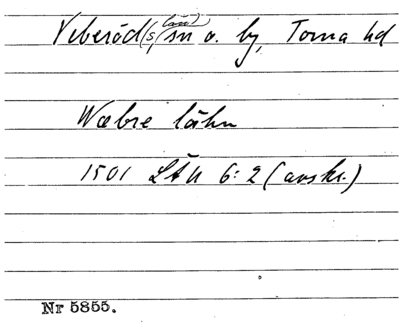 Veberöd(s län) sn o. by, Torna hd
Wæbre lähn
1501 LÅU 6:2 (avskr.)
Nr 5855.